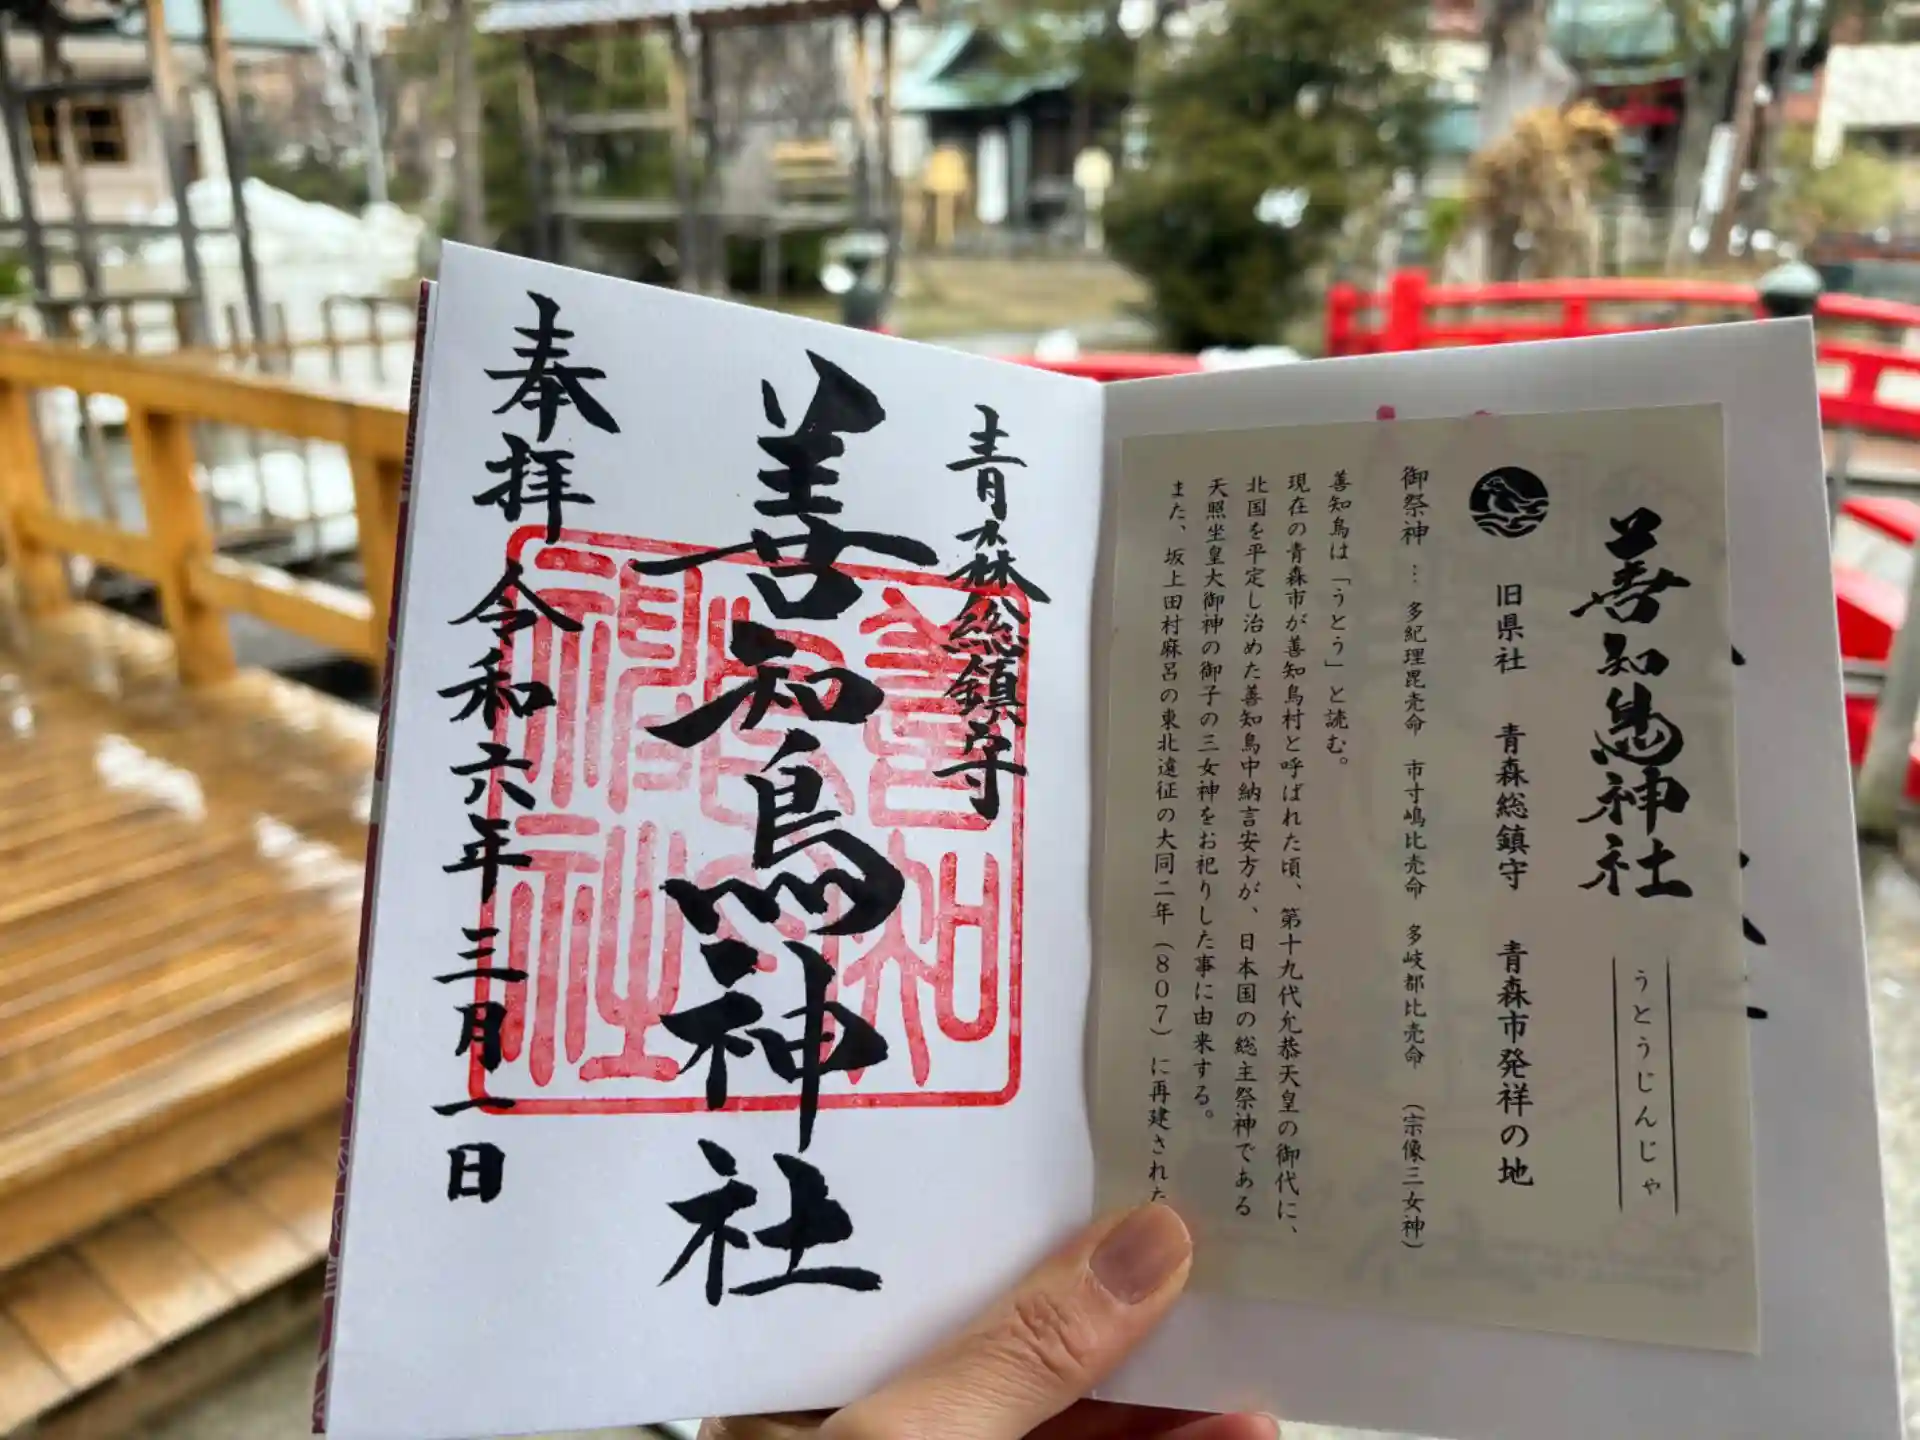 善知鳥神社
うとうじんじゃ
旧県社 青森総鎮守 青森市発祥の地
御祭神… 多紀理毘売命 市寸嶋比売命 多岐都比売命 (宗像三女神)
善知鳥は「うとう」と読む。
現在の青森市が善知鳥村と呼ばれた頃、第十九代允恭天皇の御代に、
北国を平定し治めた善知鳥中納言安方が、日本国の総主祭神である
天照坐皇大御神の御子の三女神をお祀りした事に由来する。
また、坂上田村麻呂の東北遠征の大同二年(807)に再建された
青森総鎮守
善知鳥神社
奉拝 令和六年三月一日
善知鳥神社